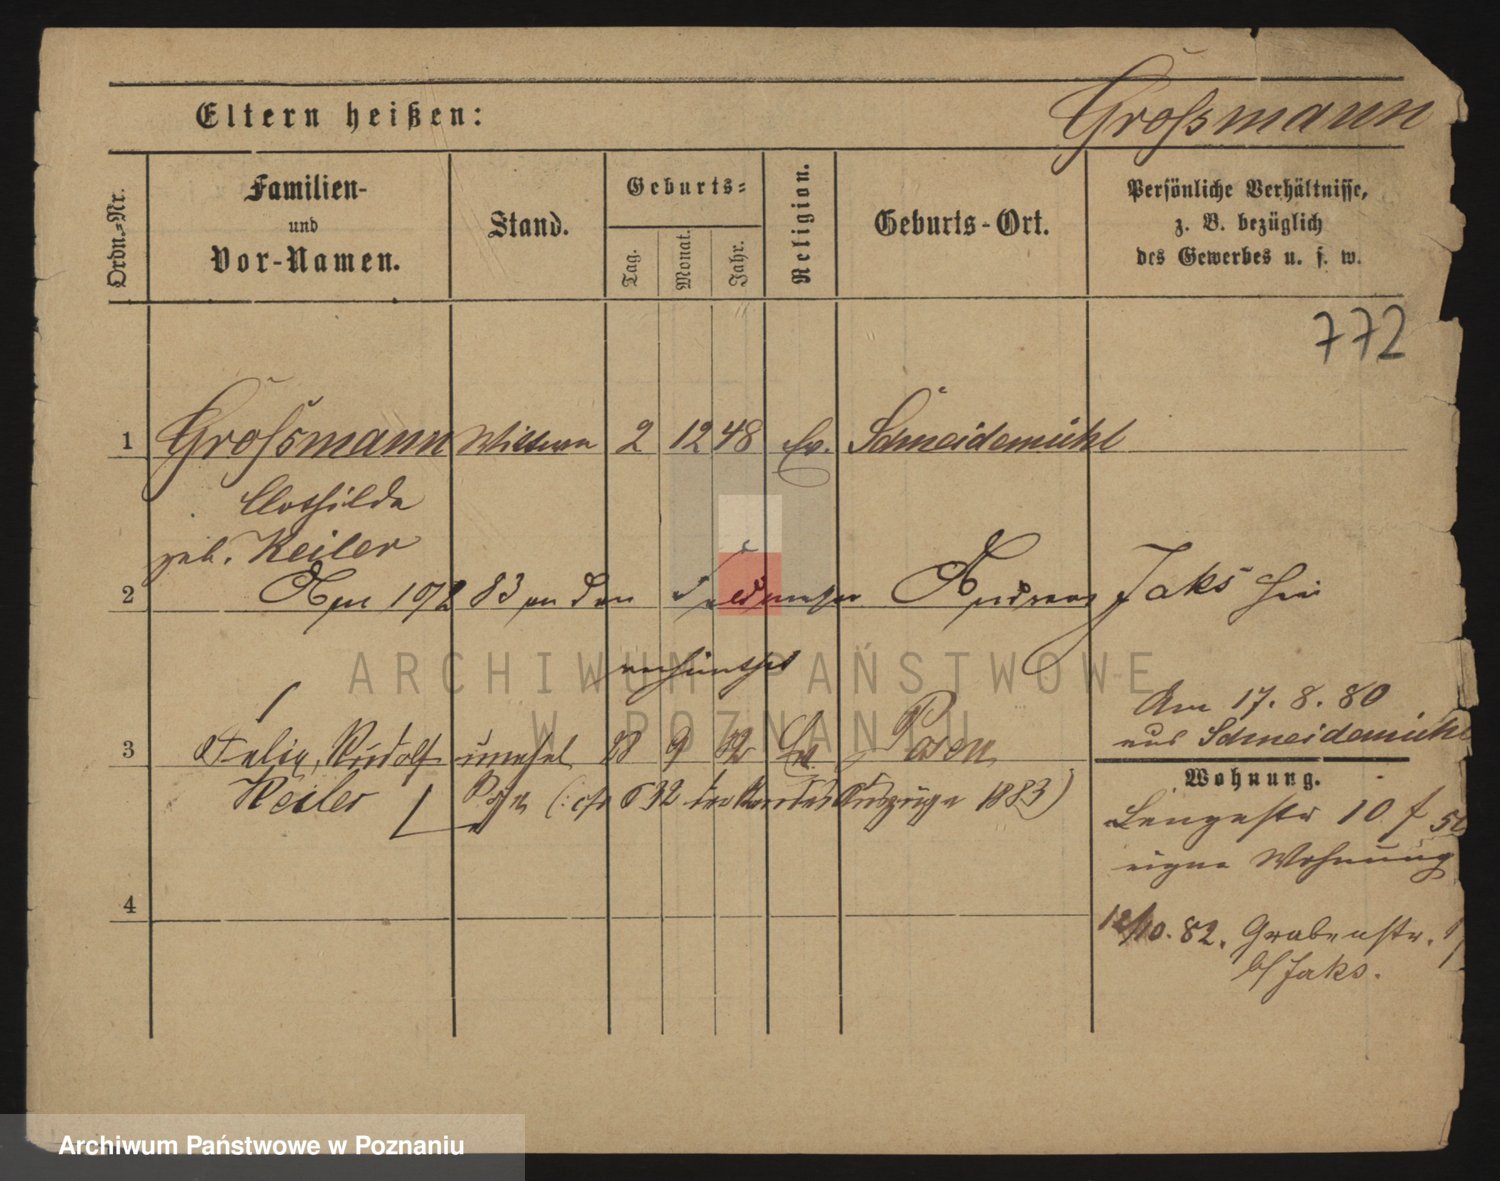 Eltern heißen:
Großmann
Ordn.-Nr.
Familien-
und
Vor-Namen.
Stand.
Geburts-
Tag.
Monat.
Jahr.
Religion.
Geburts-Ort.
Persönliche Verhältnisse,
z. B. bezüglich
des Gewerbes u. s. w.
772
1 Großmann Wittwe 2 12 48 Ev. Schneidemühl
Clothilde
geb. Keiler
2 Am 10/2 83 an den Andreas Jaks hier
verheirathet
Am 17. 8. 80
aus Schneidemühl
3 Felix, Rudolf unehel. 28 9 82 Ev. Posen
Keiler
632 des Auszüge 1883)
Wohnung.
10
eigne Wohnung
4
12/10. 82. Grabenstr.
b/ Jaks.
ARCHIWUM PAŃSTWOWE
W POZNANIU
Archiwum Państwowe w Poznaniu